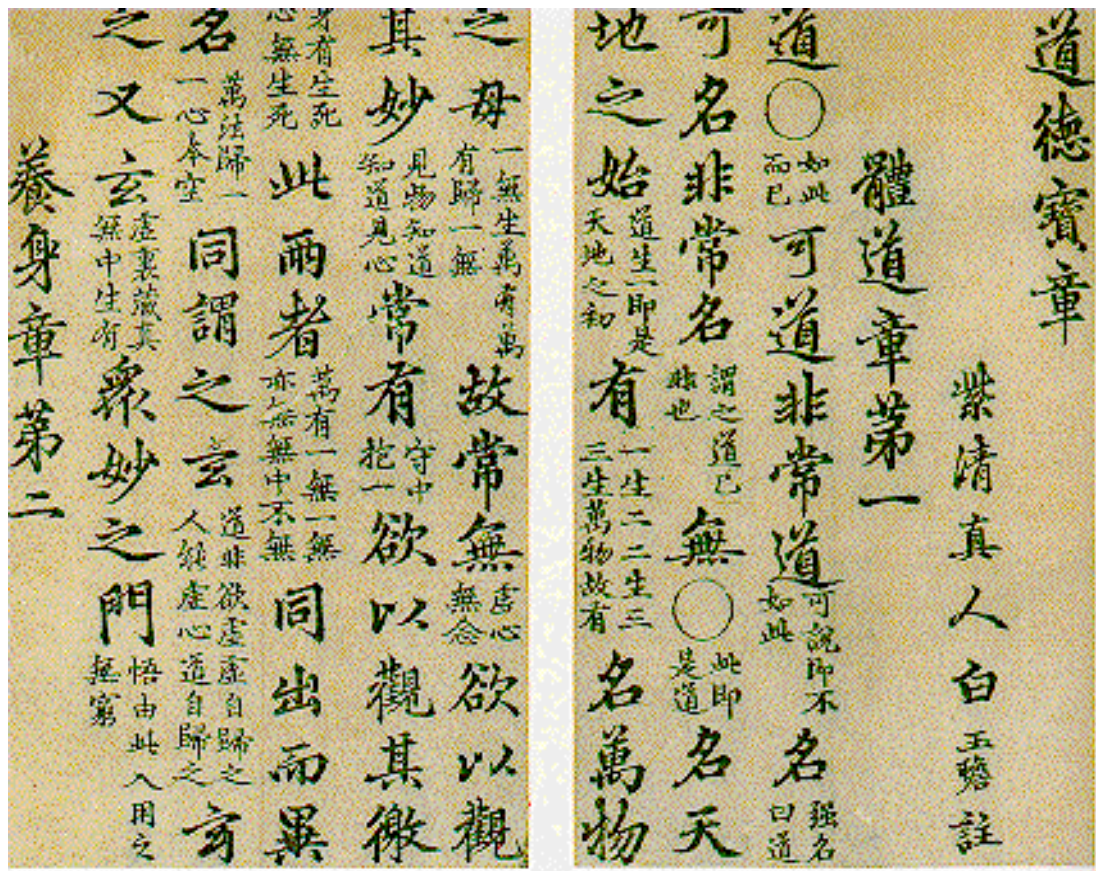 道德寶章
紫清真人白玉蟾註
體道章第一
道〇如此而已可道非常道可說即不如此名强名曰道
可名非常名謂之道已非也無〇此即是道名天
地之始道生一即是天地之初有一生二二生三三生萬物故有名萬物
之母一無生萬有萬有歸一無故常無虛心無念欲以觀
其妙見物知道知道見心常有守中抱一欲以觀其徼
身有生死心無生死此兩者萬有一無一無亦無無中不無同出而異
名萬法歸一一心本空同謂之玄道非欲虛虛自歸之人能虛心道自歸之玄
之又玄虛裏藏真無中生有衆妙之門悟由此入用之無窮
養身章第二